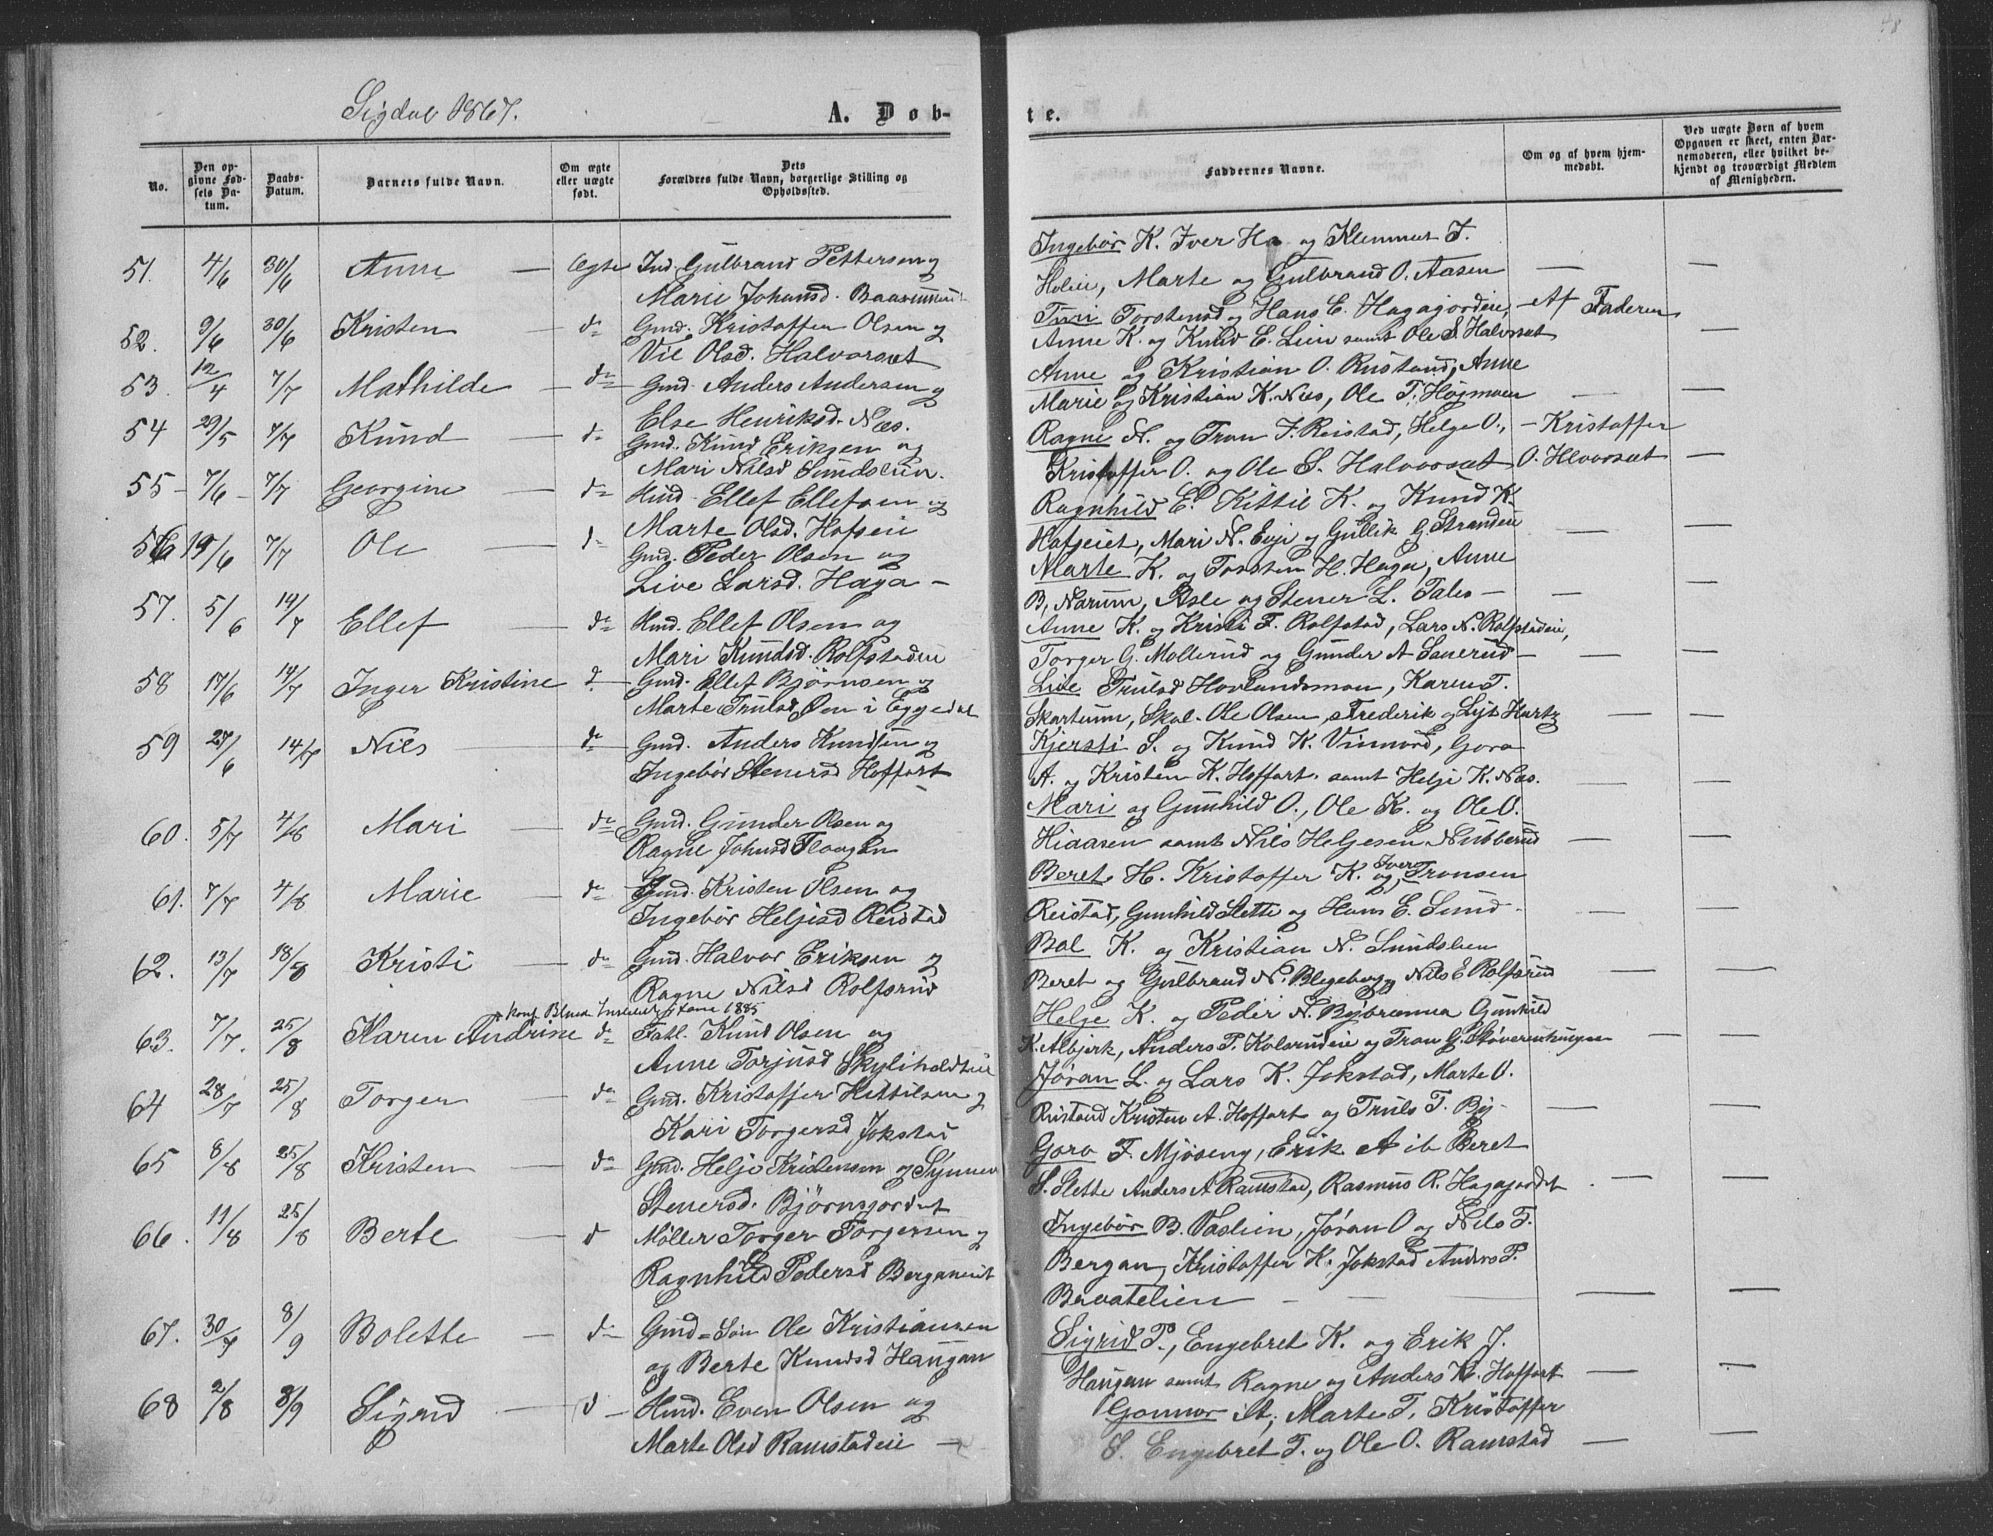 48
Sigdal 1867.
A. Døb-
te.
No.
Den op-
givne Fød-
sels Da-
tum.
Daabs-
Datum.
Barnets fulde Navn.
Om ægte
eller uægte
født.
Dets
Forældres fulde Navn, borgerlige Stilling og
Opholdssted.
Faddernes Navne.
Om og af hvem hjem-
medøbt.
Ved uægte Børn af hvem
Opgaven er skeet, enten Bar-
nemoderen, eller hvilket be-
kjendt og troværdigt Medlem
af Menigheden.
51. 4/6 30/6 Anne — Ægte Ind. Gulbrand Pettersen og
Marie Johansd.
52. 9/6 30/6 Kristen — do Gmd. Kristoffer Olsen og
Olsd. Halvorsæt
53. 12/4 7/7 Mathilde — do Gmd. Anders Andersen og
Else Henriksd. Næs.
54 29/5 7/7 Knud — do Gmd. Knud Eriksen og
Mari Nilsd Sundslien.
55 - 7/6 - 7/7 Georgine — do Hmd. Ellef Ellefsen og
Marte Olsd. Hofseie
56 19/6 7/7 Ole — do Gmd. Peder Olsen og
Live Larsd. Haga —
57. 5/6 14/7 Ellef — do Hmd. Ellef Olsen og
Mari Knudsd. Rolfstadeie
58 17/6 14/7 Inger Kristine do Gmd. Ellef Bjørnsen og
Marte Trulsd Øen i Eggedal
59 27/6 14/7 Nils — do Gmd. Anders Knudsen og
Ingebør Stenersd Hoffart
60. 5/7 4/8 Mari — do Gmd. Gunder Olsen og
Ragne Johnsd Flaagan
61. 7/7 4/8 Marie — do Gmd. Kristen Olsen og
Ingebør Heljesd Reistad
62. 13/7 18/8 Kristi — do Gmd. Halvor Eriksen og
Ragne Nilsd Rolfsrud
1885
63. 7/7. 25/8 Karen Andrine do Fatl. Knud Olsen og
Anne Torjusd
64 28/7 25/8 Torger — do Gmd. Kristoffer Kittilsen og
Kari Torgersd Jokstad
65 8/8 25/8 Kristen — do Gmd. Helje Kristensen og Synnev
Stenersd. Bjørnsjordet
66. 11/8 25/8 Berte — d Møller Torger Torgersen og
Ragnhild Pedersd Berganeiet
67. 30/7 8/9 Bolette — do Gmd = Søn Ole Kristiansen
og Berte Knudsd Haugan
68 2/8 8/9 Sigrid — d — Hmd. Even Olsen og
Marte Olsd Ramstadeie —
Ingebør K. Iver Ha og Klemmet T.
Holeie, Marte og Gulbrand O. Aasen — —
Turi Torstensd og Hans E. Hagajordeie, — Af Faderen
Anne K. og Knud E. Lien samt Ole S Halvorsæt —
Anne og Kristian O. Rustand, Anne
Marie og Kristian K. Næs, Ole T. Høgmoen — —
Ragne N. og Tron I. Reistad, Helge O., — Kristoffer
Kristoffer O. og Ole S. Halvorsæt O. Hlvorsæt —
Ragnhild E. Kittil K. og Knud K.
Hofseiet, Mari N. Eije og Gullik G. Strandeie — —
Marte K. og Torsten H. Haga, Anne
B. Narum, Asle og Stener L. Tales — — —
Anne K. og Kristi T. Rolfstad, Lars N. Rolfstadeie,
Torger G. Møllerud og Gunder A Sanerud — —
Live Trulsd Hovlandsmoen, Karen T.
Skartum, Skol. Ole Olsen, Frederik og Lyt Hartz — —
Kjersti S. og Knud K. Vinnord, Goro
A. og Kristen K. Hoffart. samt Helje K. Næs. — —
Mari og Gunhild O., Ole K. og Ole O.
Hiaasen samt Nils Heljesen Nubberud — —
Beret H. Kristoffer K. og Iver Tronsen
Reistad, Gunhild Slette og Hans E. Sund — —
Bol K. og Kristian N. Sundslien
Beret og Gulbrand N. Blegeberg, Nils E Rolfsrud — —
Helje K. og Peder N. Gunhild
K. Albjerk, Anders P. Kolsrudeie og Tron G. — —
Jøran L. og Lars K. Jokstad, Marte O.
Ristand Kristen A. Hoffart og Truls T. By — — —
Goro F. Mjøseng, Erik A ib Beret
S. Slette Anders A Ramstad, Rasmus R. Hagajordet. — —
Ingebør B. Vaslien, Jøran O og Nils T.
Bergan, Kristoffer K. Jokstad Anders P.
Bervatelien — — — —
Sigrid P., Engebret K. og Erik J.
Haugan samt Ragne og Anders K. Hoffart — —
Gonnor A., Marte T. Kristoffer
S. Engebret T. og Ole O. Ramstad — —